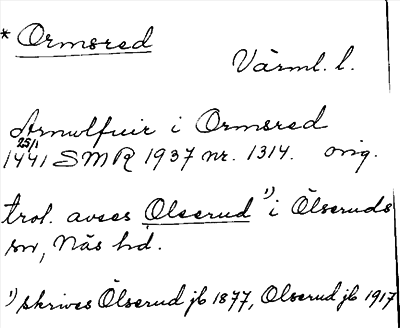 * Ormsred
Värml. l.
Arnulfuir i Ormsred
25/1
1441 SMR 1937 nr. 1314. orig.
trol. avses Olserud ¹⁾ i Ölseruds
sn, Näs hd.
¹⁾ skrives Ölserud jb 1877, Olserud jb 1917